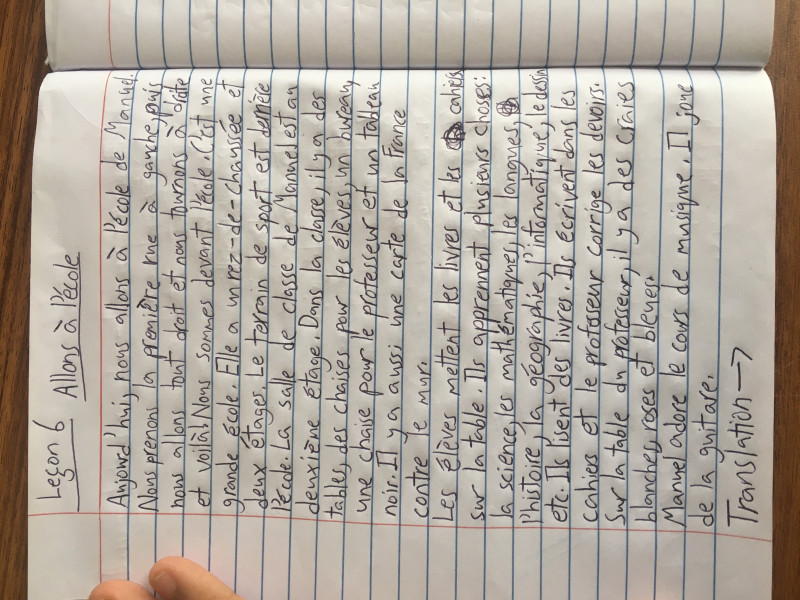 Leçon 6 Allons à l'école
Aujourd'hui, nous allons à l'école de Manuel.
Nous prenons la première rue à gauche, puis
nous allons tout droit et nous tournons à droite
et voilà! Nous sommes devant l'école. C'est une
grande école. Elle a un rez-de-chaussée et
deux étages. Le terrain de sport est derrière
l'école. La salle de classe de Manuel est au
deuxième étage. Dans la classe, il y a des
tables, des chaises pour les élèves, un bureau,
une chaise pour le professeur et un tableau
noir. Il y a aussi une carte de la France
contre le mur.
Les élèves mettent les livres et les cahiers
sur la table. Ils apprennent plusieurs choses:
la science, les mathématiques, les langues,
l'histoire, la géographie, l'informatique, le dessin
etc. Ils lisent des livres. Ils écrivent dans les
cahiers et le professeur corrige les devoirs.
Sur la table du professeur, il y a des craies
blanches, roses et bleues.
Manuel adore le cours de musique. Il joue
de la guitare.
Translation →